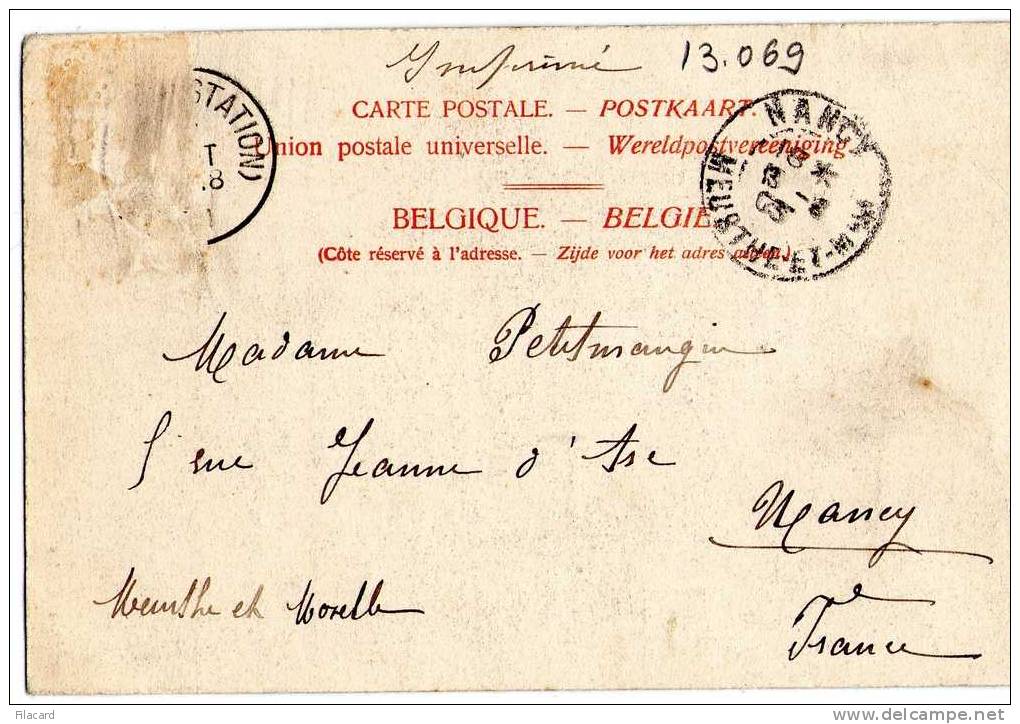 Imprimé 13.069
CARTE POSTALE. — POSTKAART.
Union postale universelle. — Wereldpostvereeniging.
BELGIQUE. — BELGIE.
(Côte réservé à l'adresse. — Zijde voor het adres alleen.)
STATION)
T
8
NANCY
MEURTHE-ET-M
Madame Petitmangin
5 rue Jeanne d'Arc
Nancy
Meurthe et Moselle
France
© Filacard
www.delcampe.net